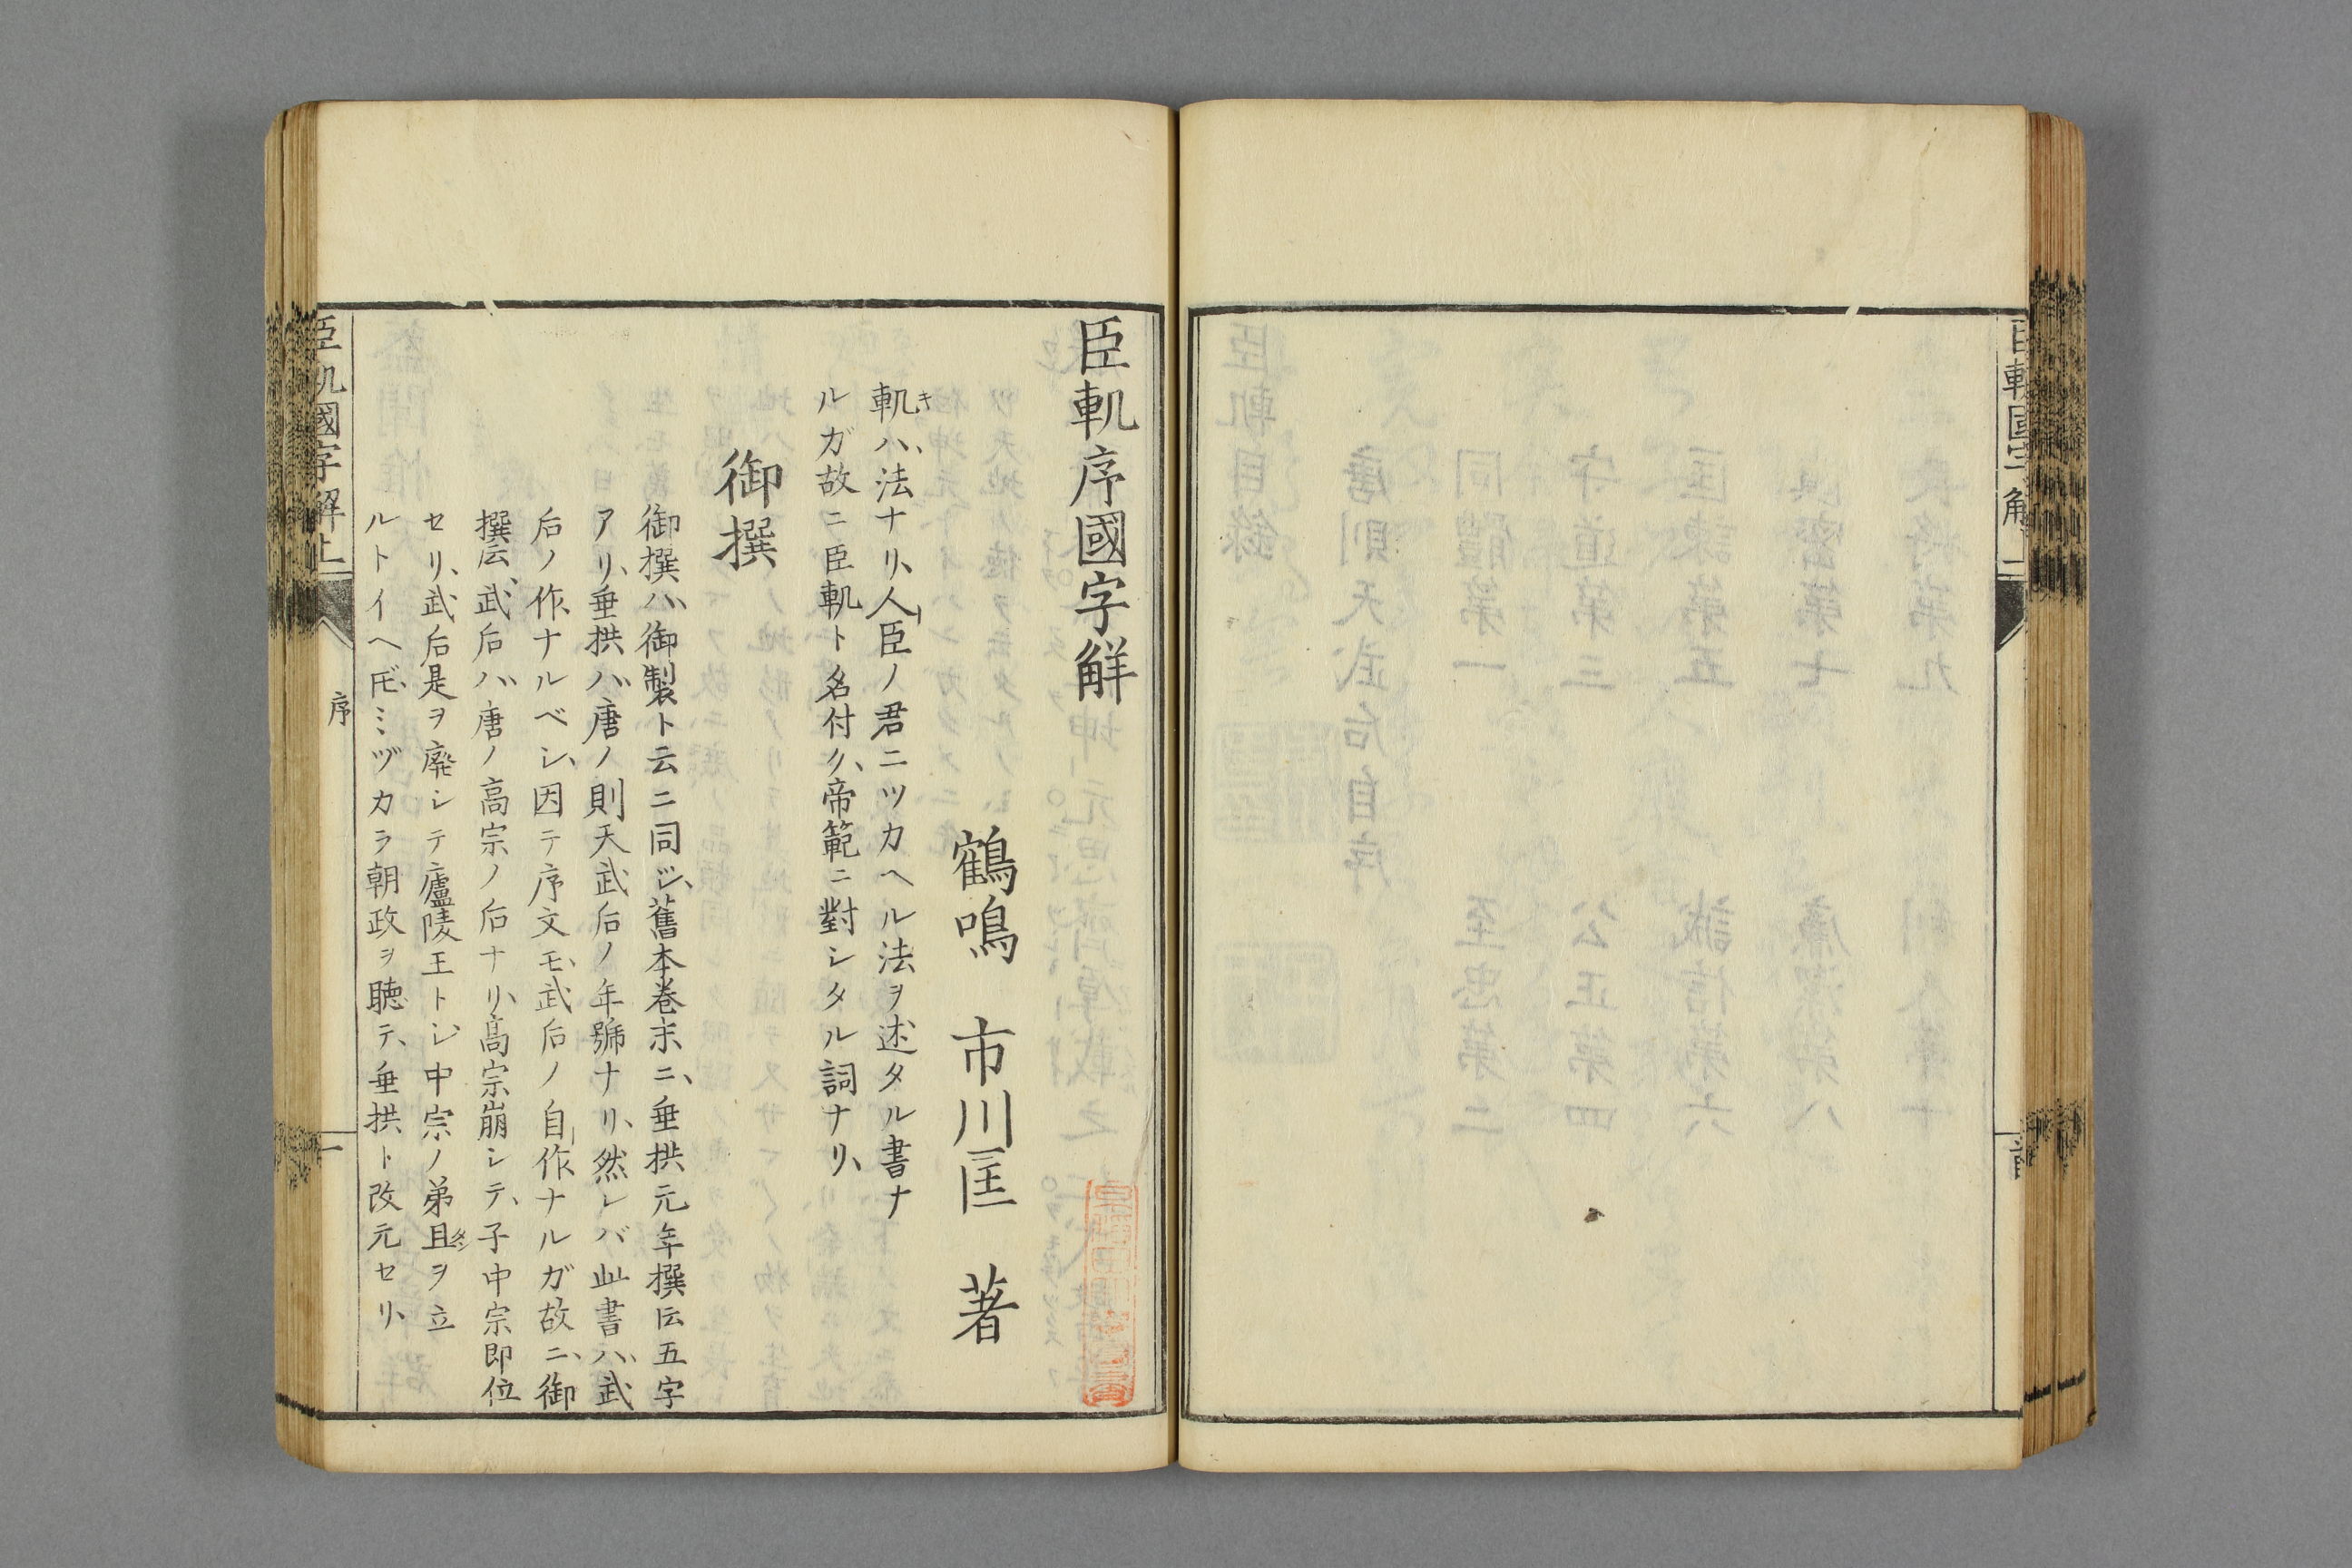 臣軌序國字觧
鶴鳴 市川匡 著
軌ハ、法ナリ、人臣ノ君ニツカヘル法ヲ述タル書ナ
ルガ故ニ臣軌ト名付ク、帝範ニ對シタル詞ナリ、
御撰
御撰ハ、御製ト云ニ同ジ、舊本巻末ニ、垂拱元年撰伝五字
アリ、垂拱ハ、唐ノ則天武后ノ年號ナリ、然レバ此書ハ、武
后ノ作ナルベシ、因テ序文モ、武后ノ自作ナルガ故ニ、御
撰伝、武后ハ、唐ノ高宗ノ后ナリ、高宗崩シテ、子中宗即位
セリ、武后是ヲ廢シテ廬陵王トシ、中宗ノ弟旦ヲ立
ルトイヘ𪜈、ミヅカラ朝政ヲ聴テ、垂拱ト改元セリ、
臣軌國字解上
序
一